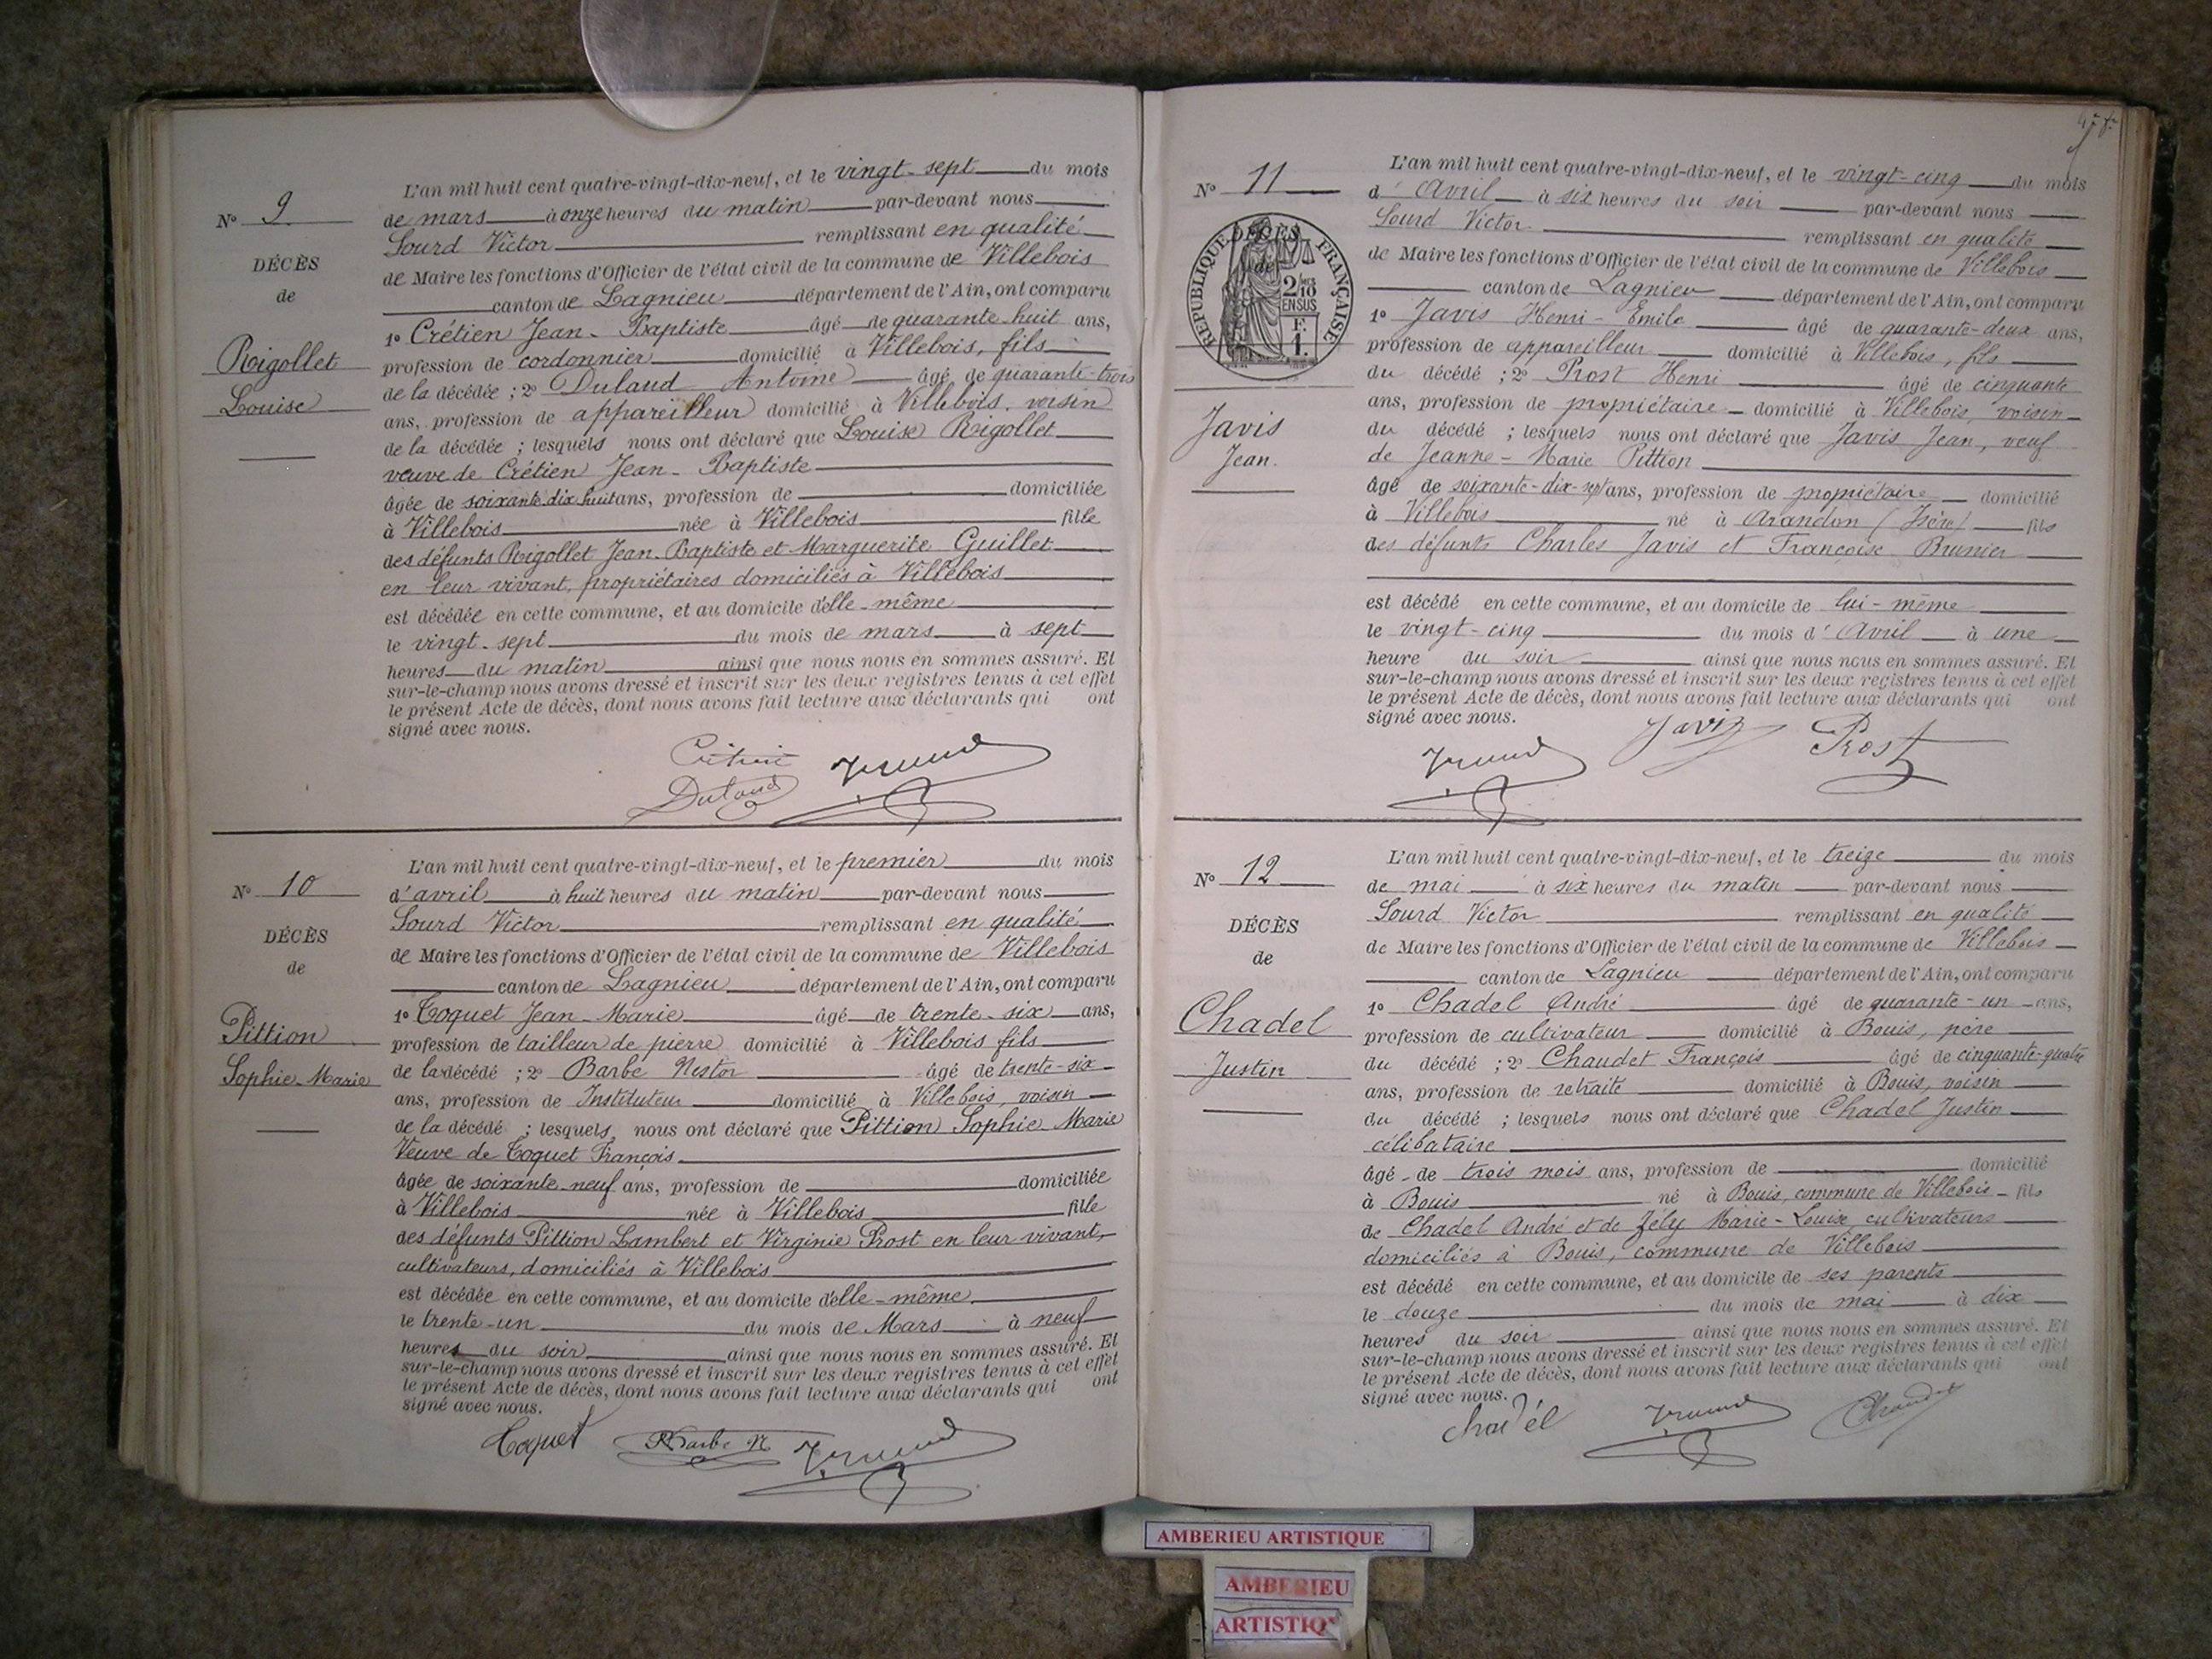 L'an mil huit cent quatre-vingt-dix-neuf, et le vingt-sept du mois
No 9
de mars à onze heures du matin par-devant nous
Sourd Victor remplissant en qualité
DÉCÈS
de
de Maire les fonctions d'Officier de l'état civil de la commune de Villebois
canton de Lagnieu département de l'Ain, ont comparu
1o Crétien Jean-Baptiste âgé de quarante-huit ans,
Rigollet
Louise
profession de cordonnier domicilié à Villebois, fils
de la décédée ; 2o Dulaud Antoine âgé de quarante-trois
ans, profession de appareilleur domicilié à Villebois, voisin
de la décédée ; lesquels nous ont déclaré que Louise Rigollet
veuve de Crétien Jean-Baptiste
âgée de soixante dix huit ans, profession de domiciliée
à Villebois née à Villebois fille
des défunts Rigollet Jean-Baptiste et Marguerite Guillet
en leur vivant, propriétaires domiciliés à Villebois
est décédée en cette commune, et au domicile d'elle-même
le vingt-sept du mois de mars à sept
heures du matin ainsi que nous nous en sommes assuré. Et
sur-le-champ nous avons dressé et inscrit sur les deux registres tenus à cet effet
le présent Acte de décès, dont nous avons fait lecture aux déclarants qui ont
signé avec nous.
L'an mil huit cent quatre-vingt-dix-neuf, et le premier du mois
No 10
d'avril à huit heures du matin par-devant nous
Sourd Victor remplissant en qualité
DÉCÈS
de
de Maire les fonctions d'Officier de l'état civil de la commune de Villebois
canton de Lagnieu département de l'Ain, ont comparu
1o Toquet Jean-Marie âgé de trente-six ans,
Pittion
Sophie-Marie
profession de tailleur de pierre domicilié à Villebois fils
de la décédé ; 2o Barbe Nestor âgé de trente-six
ans, profession de Instituteur domicilié à Villebois, voisin
de la décédée ; lesquels nous ont déclaré que Pittion Sophie Marie
Veuve de Toquet François
âgée de soixante-neuf ans, profession de domiciliée
à Villebois née à Villebois fille
des défunts Pittion Lambert et Virginie Prost en leur vivant,
cultivateurs, domiciliés à Villebois
est décédée en cette commune, et au domicile d'elle-même
le trente-un du mois de Mars à neuf
heures du soir ainsi que nous nous en sommes assuré. Et
sur-le-champ nous avons dressé et inscrit sur les deux registres tenus à cet effet
le présent Acte de décès, dont nous avons fait lecture aux déclarants qui ont
signé avec nous.
Toquet Barbe N
L'an mil huit cent quatre-vingt-dix-neuf, et le vingt-cinq du mois
No 11
d'Avril à six heures du soir par-devant nous
Sourd Victor remplissant en qualité
DÉCÈS
de
RÉPUBLIQUE FRANÇAISE
2/10 EN SUS
F. 1.
de Maire les fonctions d'Officier de l'état civil de la commune de Villebois
canton de Lagnieu département de l'Ain, ont comparu
1o Javis Henri-Emile âgé de quarante-deux ans,
profession de appareilleur domicilié à Villebois, fils
Javis
Jean.
du décédé ; 2o Prost Henri âgé de cinquante
ans, profession de propriétaire domicilié à Villebois, voisin
du décédé ; lesquels nous ont déclaré que Javis Jean, veuf
de Jeanne-Marie Pittion
âgé de soixante-dix-sept ans, profession de propriétaire domicilié
à Villebois né à Arandon (Isère) fils
des défunts Charles Javis et Françoise Brunier
est décédé en cette commune, et au domicile de lui-même
le vingt-cinq du mois d'Avril à une
heure du soir ainsi que nous nous en sommes assuré. Et
sur-le-champ nous avons dressé et inscrit sur les deux registres tenus à cet effet
le présent Acte de décès, dont nous avons fait lecture aux déclarants qui ont
signé avec nous.
Javis Prost
L'an mil huit cent quatre-vingt-dix-neuf, et le treize du mois
No 12
de mai à six heures du matin par-devant nous
Sourd Victor remplissant en qualité
DÉCÈS
de
de Maire les fonctions d'Officier de l'état civil de la commune de Villebois
canton de Lagnieu département de l'Ain, ont comparu
1o Chadel André âgé de quarante-un ans,
Chadel
Justin
profession de cultivateur domicilié à Bouis, père
du décédé ; 2o Chaudet François âgé de cinquante-quatre
ans, profession de retraité domicilié à Bouis, voisin
du décédé ; lesquels nous ont déclaré que Chadel Justin
célibataire
âgé de trois mois ans, profession de domicilié
à Bouis né à Bouis, commune de Villebois fils
de Chadel André et de Zély Marie-Louise, cultivateurs
domiciliés à Bouis, commune de Villebois
est décédé en cette commune, et au domicile de ses parents
le douze du mois de mai à dix
heures du soir ainsi que nous nous en sommes assuré. Et
sur-le-champ nous avons dressé et inscrit sur les deux registres tenus à cet effet
le présent Acte de décès, dont nous avons fait lecture aux déclarants qui ont
signé avec nous.
chadél
AMBERIEU ARTISTIQUE
AMBERIEU
ARTISTIQ